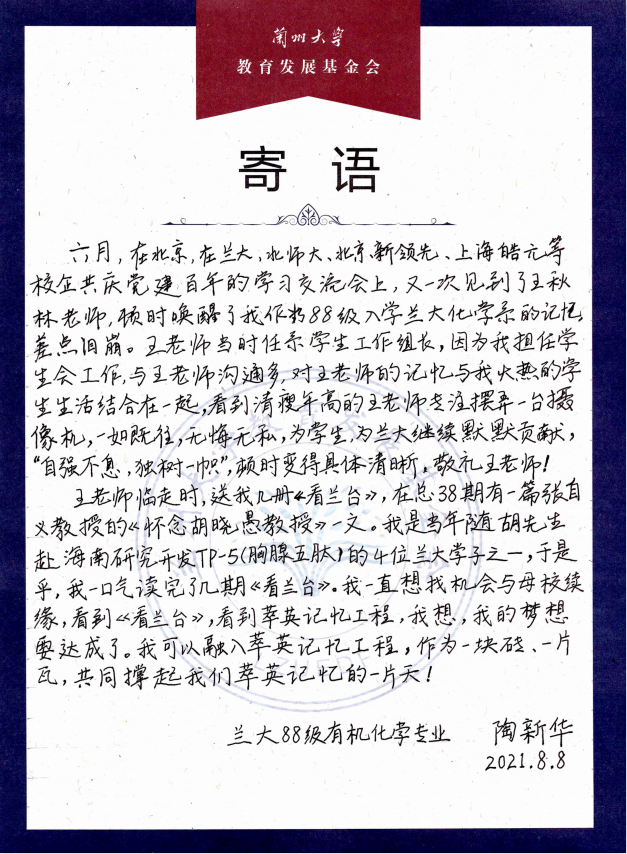 兰州大学
教育发展基金会
寄语
六月，在北京，在兰大、北师大、北京新领先、上海皓元等
校企共庆党建百年的学习交流会上，又一次见到了王秋
林老师，顿时唤醒了我作为88级入学兰大化学系的记忆
差点泪崩。王老师当时任系学生工作组长，因为我担任学
生会工作，与王老师沟通多，对王老师的记忆与我火热的学
生生活结合在一起，看到清瘦年高的王老师专注摆弄一台摄
像机，一如既往，无悔无私，为学生，为兰大继续默默贡献，
“自强不息，独树一帜”，顿时变得具体清晰，敬礼王老师！
王老师临走时，送我几册《看兰台》，在总38期有一篇张自
义教授的《怀念胡晓愚教授》一文。我是当年随胡先生
赴海南研究开发TP-5(胸腺五肽)的4位兰大学子之一，于是
乎，我一口气读完了几期《看兰台》。我一直想找机会与母校续
缘，看到《看兰台》，看到萃英记忆工程，我想，我的梦想
要达成了。我可以融入萃英记忆工程，作为一块砖、一片
瓦，共同撑起我们萃英记忆的一片天！
兰大88级有机化学专业 陶新华
2021.8.8